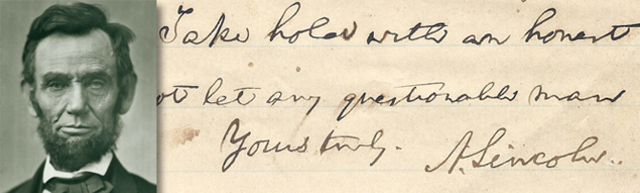 Take hold with an honest
ot let any questionable man
Yours truly. A. Lincoln.